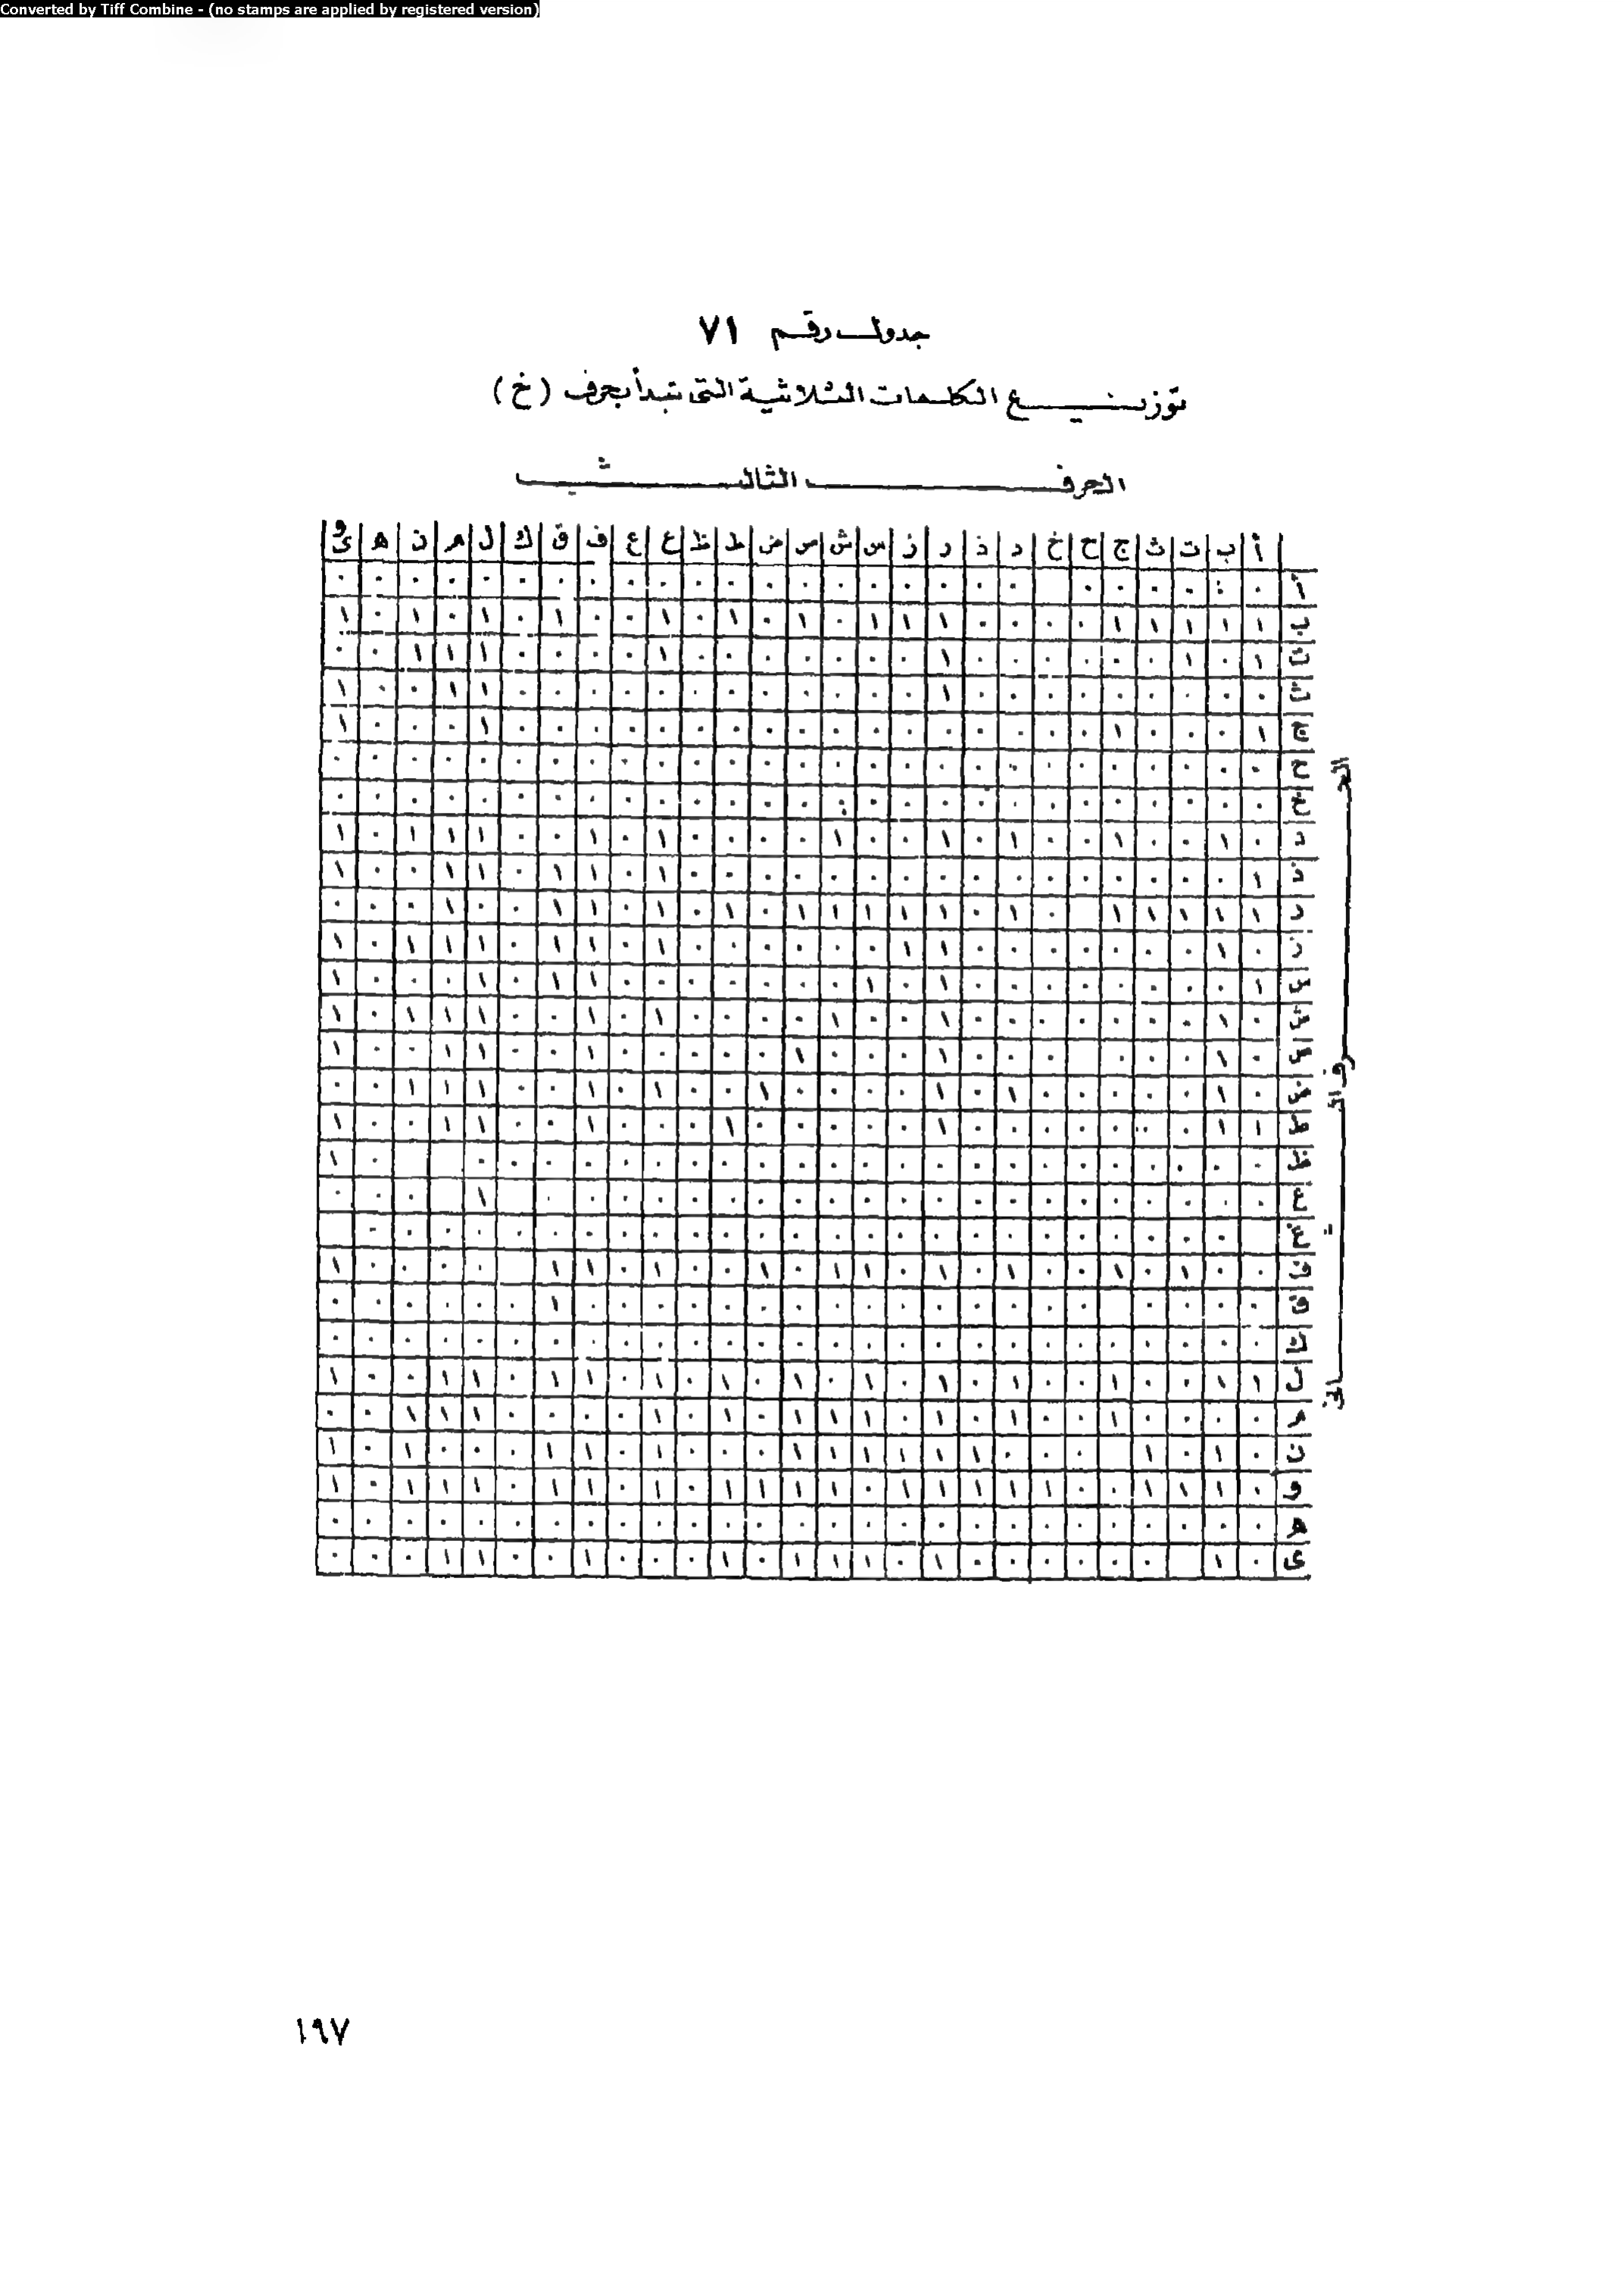 Converted by Tiff Combine - (no stamps are applied by registered version)
جدول رقم ٧١
توزيع الكلمات الثلاثية التى تبدأ بحرف (خ)
الحرف الثالث
أ ب ت ث ج ح خ د ذ ر ز س ش ص ض ط ظ ع غ ف ق ك ل م ن ه وى
أ ٠ ٠ ٠ ٠ ٠ ٠ ٠ ٠ ٠ ٠ ٠ ٠ ٠ ٠ ٠ ٠ ٠ ٠ ٠ ٠ ٠ ٠ ٠ ٠ ٠ ٠
ب ١ ١ ١ ١ ١ ٠ ٠ ٠ ٠ ١ ١ ١ ٠ ١ ٠ ١ ٠ ١ ٠ ٠ ١ ٠ ١ ٠ ١ ٠ ١
ت ١ ٠ ١ ٠ ٠ ٠ ٠ ٠ ٠ ١ ٠ ٠ ٠ ٠ ٠ ٠ ٠ ١ ٠ ٠ ٠ ٠ ١ ١ ١ ٠ ٠
ث ٠ ٠ ٠ ٠ ٠ ٠ ٠ ٠ ٠ ١ ٠ ٠ ٠ ٠ ٠ ٠ ٠ ٠ ٠ ٠ ٠ ٠ ١ ١ ٠ ٠ ١
ج ١ ٠ ٠ ٠ ١ ٠ ٠ ٠ ٠ ٠ ٠ ٠ ٠ ٠ ٠ ٠ ٠ ٠ ٠ ٠ ٠ ٠ ١ ٠ ٠ ٠ ١
ح ٠ ٠ ٠ ٠ ٠ ٠ ٠ ٠ ٠ ٠ ٠ ٠ ٠ ٠ ٠ ٠ ٠ ٠ ٠ ٠ ٠ ٠ ٠ ٠ ٠ ٠ ٠
خ ٠ ٠ ٠ ٠ ٠ ٠ ٠ ٠ ٠ ٠ ٠ ٠ ٠ ٠ ٠ ٠ ٠ ٠ ٠ ٠ ٠ ٠ ٠ ٠ ٠ ٠ ٠
د ٠ ١ ٠ ٠ ١ ٠ ٠ ١ ٠ ١ ٠ ٠ ١ ٠ ٠ ٠ ٠ ١ ٠ ١ ٠ ٠ ١ ١ ١ ٠ ١
ذ ١ ٠ ٠ ٠ ٠ ٠ ٠ ٠ ٠ ٠ ٠ ٠ ٠ ٠ ٠ ٠ ٠ ١ ٠ ١ ١ ٠ ١ ١ ٠ ٠ ١
ر ١ ١ ١ ١ ١ ٠ ١ ٠ ١ ١ ١ ١ ١ ٠ ١ ٠ ١ ٠ ١ ١ ٠ ٠ ١ ٠ ٠ ٠
ز ٠ ١ ٠ ٠ ٠ ٠ ٠ ٠ ٠ ١ ١ ٠ ٠ ٠ ٠ ٠ ٠ ١ ٠ ١ ١ ٠ ١ ١ ١ ٠ ١
س ١ ٠ ٠ ٠ ٠ ٠ ٠ ٠ ٠ ١ ٠ ١ ٠ ٠ ٠ ٠ ٠ ٠ ٠ ١ ١ ٠ ١ ٠ ٠ ٠ ١
ش ٠ ١ ٠ ٠ ٠ ٠ ٠ ٠ ٠ ١ ٠ ٠ ١ ٠ ٠ ٠ ٠ ١ ٠ ١ ٠ ٠ ١ ١ ١ ٠ ١
ص ٠ ١ ٠ ٠ ٠ ٠ ٠ ٠ ١ ٠ ٠ ٠ ١ ٠ ٠ ٠ ٠ ٠ ١ ٠ ٠ ١ ١ ٠ ٠ ١
ض ٠ ١ ٠ ٠ ٠ ٠ ٠ ١ ٠ ١ ٠ ٠ ٠ ٠ ١ ٠ ٠ ١ ٠ ١ ٠ ٠ ١ ١ ١ ٠ ٠
ط ١ ١ ٠ ٠ ٠ ٠ ٠ ٠ ٠ ١ ٠ ٠ ٠ ٠ ٠ ١ ٠ ٠ ٠ ١ ٠ ٠ ١ ١ ٠ ٠ ١
ظ ٠ ٠ ٠ ٠ ٠ ٠ ٠ ٠ ٠ ٠ ٠ ٠ ٠ ٠ ٠ ٠ ٠ ٠ ٠ ٠ ٠ ٠ ٠ ٠ ١
ع ٠ ٠ ٠ ٠ ٠ ٠ ٠ ٠ ٠ ٠ ٠ ٠ ٠ ٠ ٠ ٠ ٠ ٠ ٠ ٠ ٠ ١ ٠ ٠ ٠
غ ٠ ٠ ٠ ٠ ٠ ٠ ٠ ٠ ٠ ٠ ٠ ٠ ٠ ٠ ٠ ٠ ٠ ٠ ٠ ٠ ٠ ٠ ٠ ٠ ٠
ف ٠ ٠ ١ ٠ ١ ٠ ٠ ١ ٠ ١ ٠ ١ ١ ٠ ١ ٠ ٠ ١ ٠ ١ ١ ٠ ٠ ٠ ٠ ١
ق ٠ ٠ ٠ ٠ ٠ ٠ ٠ ٠ ٠ ٠ ٠ ٠ ٠ ٠ ٠ ٠ ٠ ٠ ٠ ١ ٠ ٠ ٠ ٠ ٠ ٠
ك ٠ ٠ ٠ ٠ ٠ ٠ ٠ ٠ ٠ ٠ ٠ ٠ ٠ ٠ ٠ ٠ ٠ ٠ ٠ ٠ ٠ ٠ ٠ ٠ ٠ ٠ ٠
ل ١ ١ ٠ ٠ ١ ٠ ٠ ١ ٠ ١ ٠ ١ ٠ ١ ٠ ١ ٠ ١ ٠ ١ ١ ٠ ١ ١ ٠ ٠ ١
م ٠ ٠ ٠ ٠ ١ ٠ ٠ ١ ٠ ١ ٠ ١ ١ ١ ٠ ١ ٠ ١ ٠ ٠ ٠ ٠ ١ ١ ١ ٠ ٠
ن ٠ ١ ٠ ١ ٠ ٠ ٠ ١ ١ ١ ١ ١ ١ ٠ ٠ ٠ ١ ٠ ١ ١ ٠ ٠ ٠ ١ ٠ ١
و ٠ ١ ١ ١ ٠ ٠ ١ ١ ١ ١ ١ ٠ ١ ١ ١ ١ ٠ ١ ٠ ١ ١ ٠ ١ ١ ١ ٠ ١
ه ٠ ٠ ٠ ٠ ٠ ٠ ٠ ٠ ٠ ٠ ٠ ٠ ٠ ٠ ٠ ٠ ٠ ٠ ٠ ٠ ٠ ٠ ٠ ٠ ٠ ٠ ٠
ى ٠ ١ ٠ ٠ ٠ ٠ ٠ ٠ ١ ٠ ١ ١ ١ ٠ ١ ٠ ٠ ٠ ١ ٠ ٠ ١ ١ ٠ ٠ ٠
الحرف الثانى
١٩٧